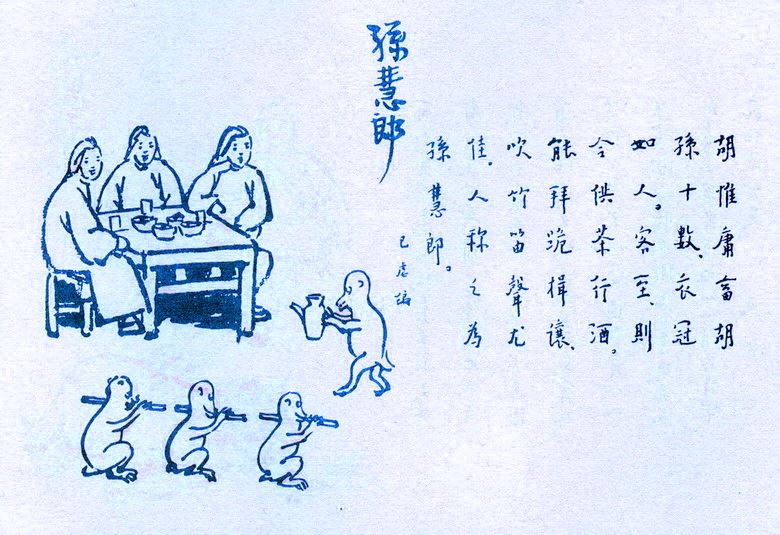 孫慧郎
胡惟庸畜胡
孫十數、衣冠
如人。客至、則
令供茶行酒。
能拜跪揖讓、
吹竹笛聲尤
佳。人称之為
孫慧郎。